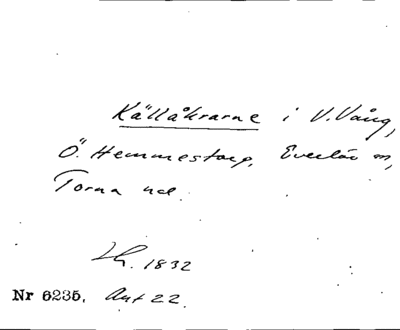 Källåkrarne i V. Vång,
Ö. Hemmestorp, Everlöv sn,
Torna hd.
Lh. 1832
Nr 6235. Akt 22.